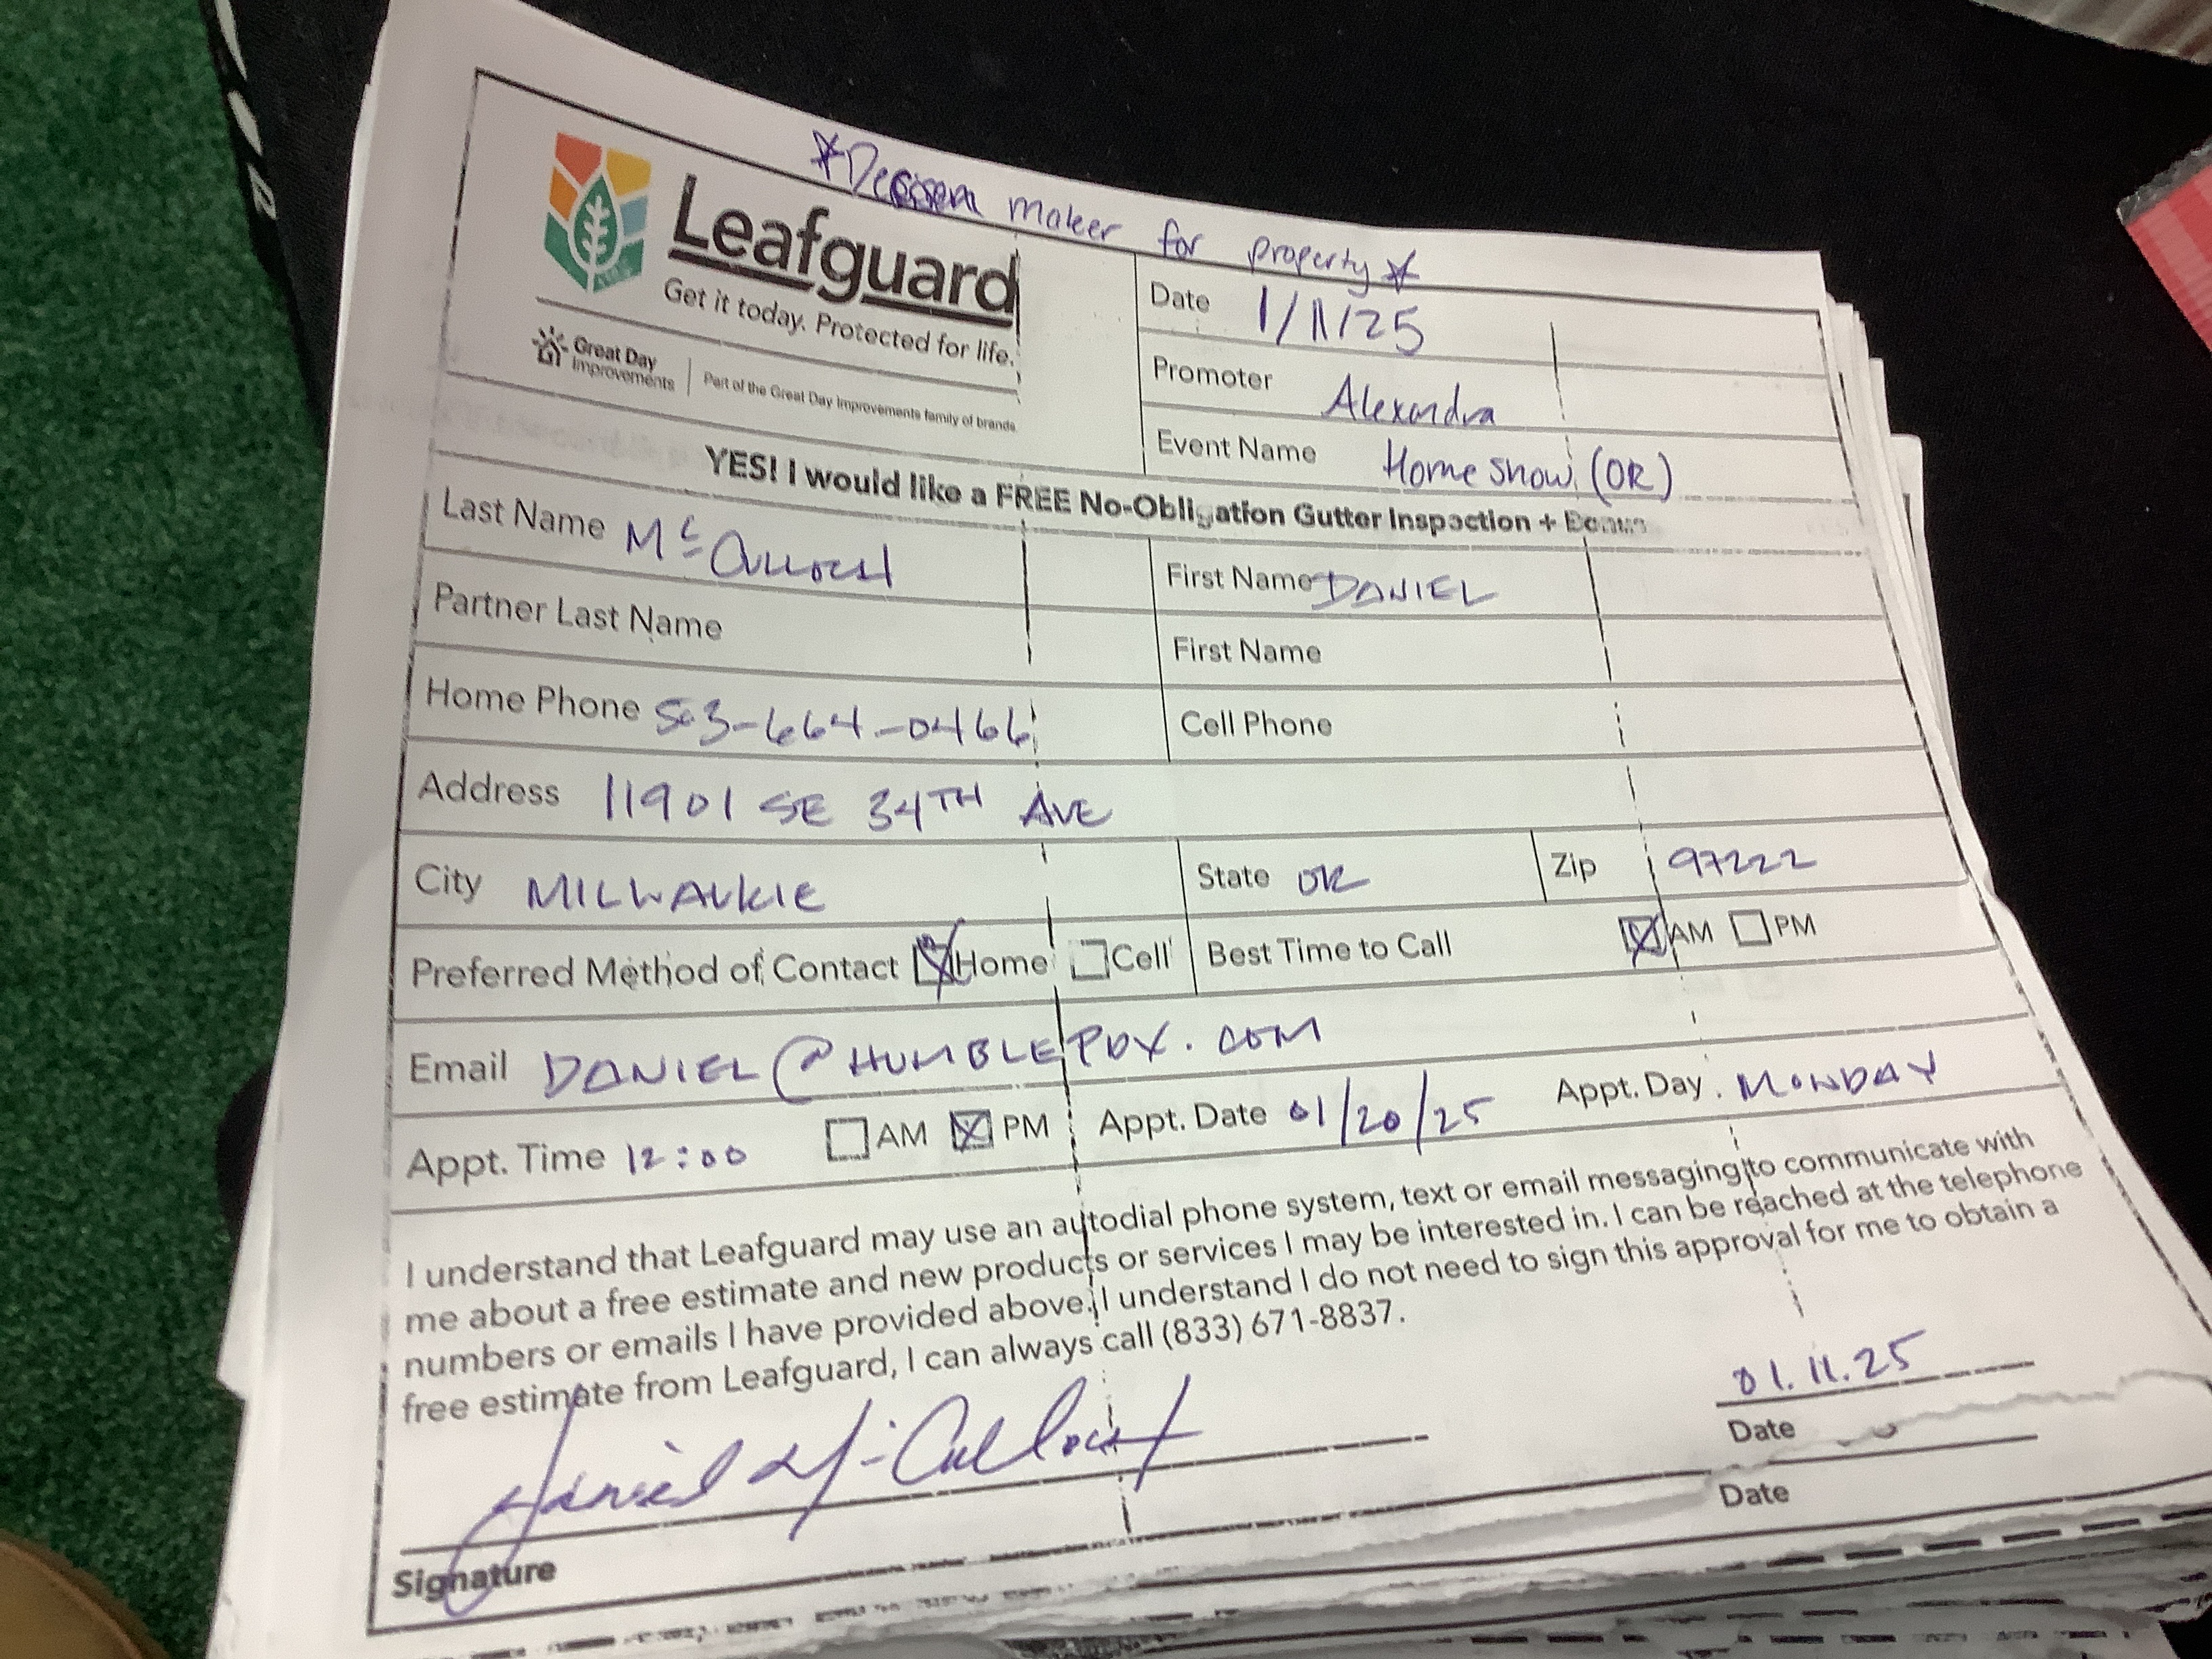 *Decision maker for property*
Leafguard
Get it today. Protected for life.
Great Day Improvements
Part of the Great Day Improvements family of brands.
Date 1/11/25
Promoter Alexandra
Event Name Home Show (OR)
YES! I would like a FREE No-Obligation Gutter Inspection + Bonus
Last Name McCulloch First Name DANIEL
Partner Last Name First Name
Home Phone 503-664-0466 Cell Phone
Address 11901 SE 34TH AVE
City MILWAUKIE State OR Zip 97222
Preferred Method of Contact Home Cell Best Time to Call AM PM
Email DANIEL@HUMBLEPDX.COM
Appt. Time 12:00 AM PM Appt. Date 01/20/25 Appt. Day MONDAY
I understand that Leafguard may use an autodial phone system, text or email messaging to communicate with
me about a free estimate and new products or services I may be interested in. I can be reached at the telephone
numbers or emails I have provided above. I understand I do not need to sign this approval for me to obtain a
free estimate from Leafguard, I can always call (833) 671-8837.
Daniel McCulloch
01.11.25
Signature Date
Date